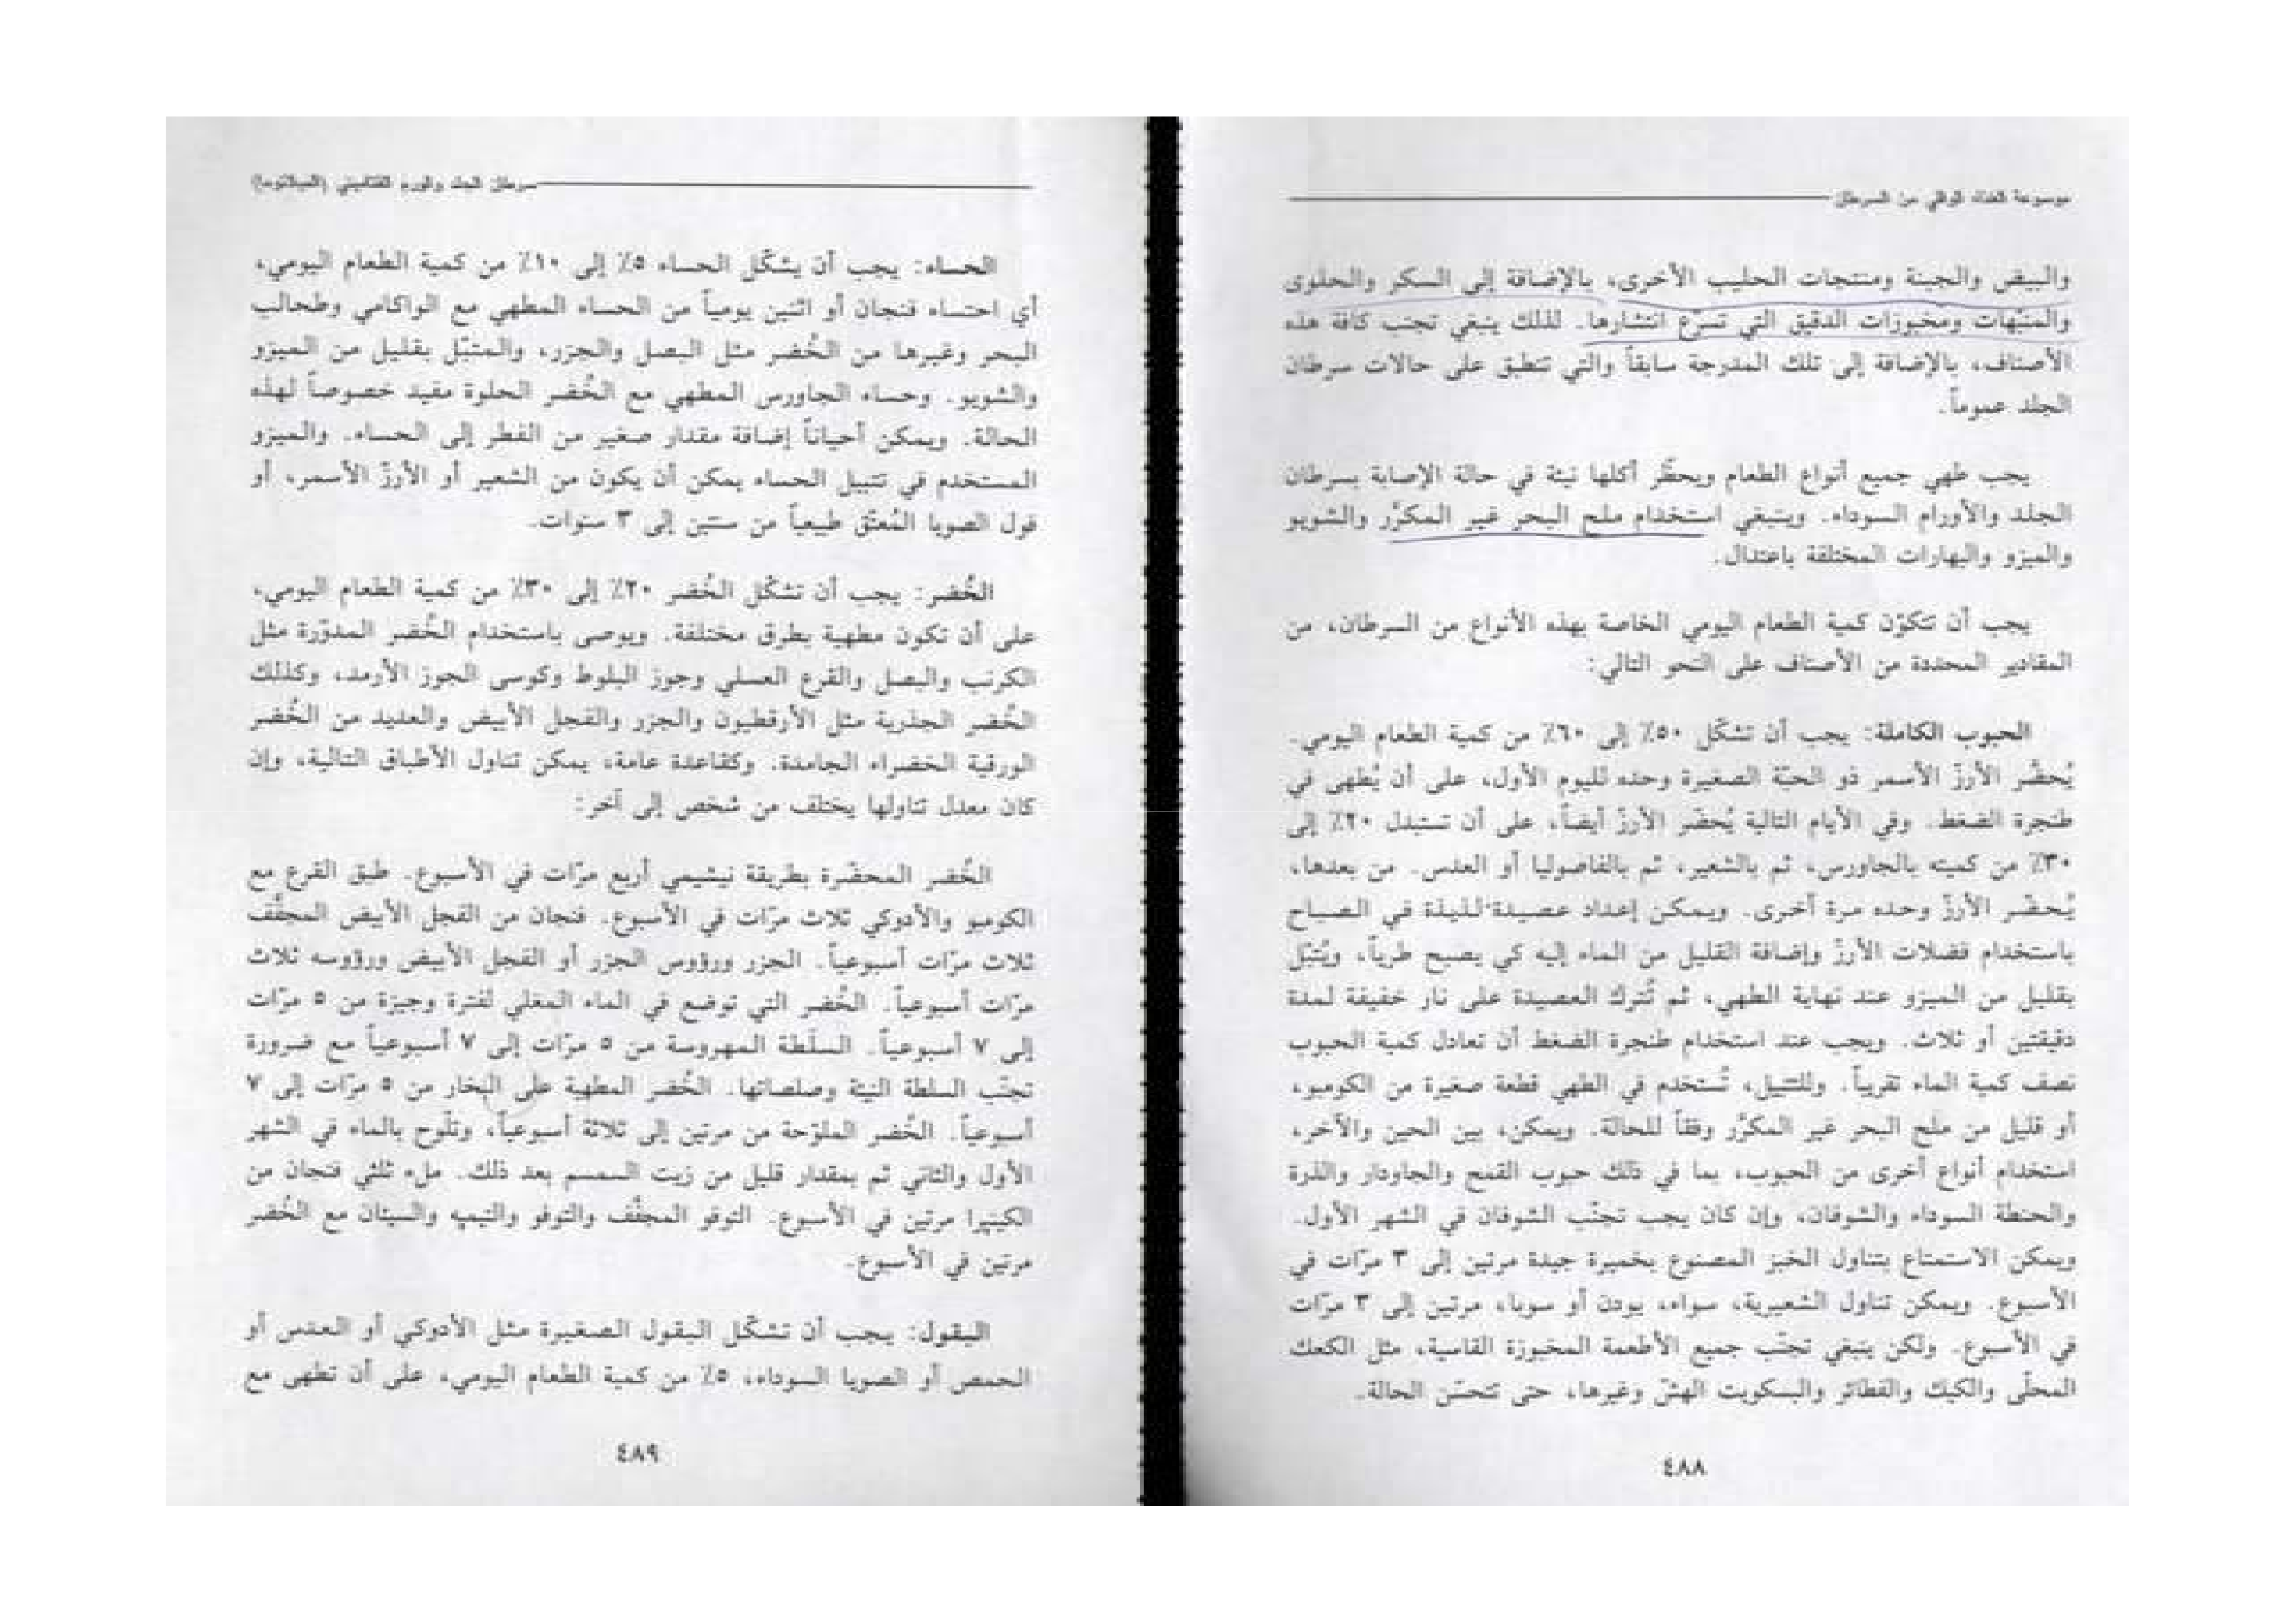 موسوعة الغذاء الواقي من السرطان
والبيض والجبنة ومنتجات الحليب الأخرى، بالإضافة إلى السكر والحلوى
والمنبّهات ومخبوزات الدقيق التي تسرّع انتشارها. لذلك ينبغي تجنب كافة هذه
الأصناف، بالإضافة إلى تلك المدرجة سابقاً والتي تنطبق على حالات سرطان
الجلد عموماً.
يجب طهي جميع أنواع الطعام ويحظّر أكلها نيئة في حالة الإصابة بسرطان
الجلد والأورام السوداء. وينبغي استخدام ملح البحر غير المكرّر والشويو
والميزو والبهارات المختلفة باعتدال.
يجب أن تتكوّن كمية الطعام اليومي الخاصة بهذه الأنواع من السرطان، من
المقادير المحددة من الأصناف على النحو التالي:
الحبوب الكاملة: يجب أن تشكّل ٥٠٪ إلى ٦٠٪ من كمية الطعام اليومي.
يُحضّر الأرزّ الأسمر ذو الحبّة الصغيرة وحده لليوم الأول، على أن يُطهى في
طنجرة الضغط. وفي الأيام التالية يُحضّر الأرزّ أيضاً، على أن تستبدل ٢٠٪ إلى
٣٠٪ من كميته بالجاورس، ثم بالشعير، ثم بالفاصوليا أو العدس. من بعدها،
يُحضّر الأرزّ وحده مرة أخرى. ويمكن إعداد عصيدة لذيذة في الصباح
باستخدام فضلات الأرزّ وإضافة القليل من الماء إليه كي يصبح طرياً، ويُتبّل
بقليل من الميزو عند نهاية الطهي، ثم تُترك العصيدة على نار خفيفة لمدة
دقيقتين أو ثلاث. ويجب عند استخدام طنجرة الضغط أن تعادل كمية الحبوب
نصف كمية الماء تقريباً. وللتتبيل، تُستخدم في الطهي قطعة صغيرة من الكومبو،
أو قليل من ملح البحر غير المكرّر وفقاً للحالة. ويمكن، بين الحين والآخر،
استخدام أنواع أخرى من الحبوب، بما في ذلك حبوب القمح والجاودار والذرة
والحنطة السوداء والشوفان، وإن كان يجب تجنّب الشوفان في الشهر الأول.
ويمكن الاستمتاع بتناول الخبز المصنوع بخميرة جيدة مرتين إلى ٣ مرّات في
الأسبوع. ويمكن تناول الشعيرية، سواء، يودن أو سوبا، مرتين إلى ٣ مرّات
في الأسبوع. ولكن ينبغي تجنّب جميع الأطعمة المخبوزة القاسية، مثل الكعك
المحلّى والكيك والفطائر والبسكويت الهشّ وغيرها، حتى تتحسّن الحالة.
٤٨٨
سرطان الجلد والورم القتاميني (الميلانوما)
الحساء: يجب أن يشكّل الحساء ٥٪ إلى ١٠٪ من كمية الطعام اليومي،
أي احتساء فنجان أو اثنين يومياً من الحساء المطهي مع الواكامي وطحالب
البحر وغيرها من الخُضر مثل البصل والجزر، والمتبّل بقليل من الميزو
والشويو. وحساء الجاورس المطهي مع الخُضر الحلوة مفيد خصوصاً لهذه
الحالة. ويمكن أحياناً إضافة مقدار صغير من الفطر إلى الحساء. والميزو
المستخدم في تتبيل الحساء يمكن أن يكون من الشعير أو الأرزّ الأسمر، أو
فول الصويا المُعتّق طبيعياً من سنتين إلى ٣ سنوات.
الخُضر: يجب أن تشكّل الخُضر ٢٠٪ إلى ٣٠٪ من كمية الطعام اليومي،
على أن تكون مطهية بطرق مختلفة. ويوصى باستخدام الخُضر المدوّرة مثل
الكرنب والبصل والقرع العسلي وجوز البلوط وكوسى الجوز الأرمد، وكذلك
الخُضر الجذرية مثل الأرقطيون والجزر والفجل الأبيض والعديد من الخُضر
الورقية الخضراء الجامدة. وكقاعدة عامة، يمكن تناول الأطباق التالية، وإن
كان معدل تناولها يختلف من شخص إلى آخر:
الخُضر المحضّرة بطريقة نيشيمي أربع مرّات في الأسبوع. طبق القرع مع
الكومبو والأدوكي ثلاث مرّات في الأسبوع. فنجان من الفجل الأبيض المجفّف
ثلاث مرّات أسبوعياً. الجزر ورؤوس الجزر أو الفجل الأبيض ورؤوسه ثلاث
مرّات أسبوعياً. الخُضر التي توضع في الماء المغلي لفترة وجيزة من ٥ مرّات
إلى ٧ أسبوعياً. السلَطة المهروسة من ٥ مرّات إلى ٧ أسبوعياً مع ضرورة
تجنّب السلطة النيئة وصلصاتها. الخُضر المطهية على البخار من ٥ مرّات إلى ٧
أسبوعياً. الخُضر الملوّحة من مرتين إلى ثلاثة أسبوعياً، وتلّوح بالماء في الشهر
الأول والثاني ثم بمقدار قليل من زيت السمسم بعد ذلك. ملء ثلثي فنجان من
الكينبيرا مرتين في الأسبوع. التوفو المجفّف والتوفو والتيمبه والسيتان مع الخُضر
مرتين في الأسبوع.
البقول: يجب أن تشكّل البقول الصغيرة مثل الأدوكي أو العدس أو
الحمص أو الصويا السوداء، ٥٪ من كمية الطعام اليومي، على أن تطهى مع
٤٨٩